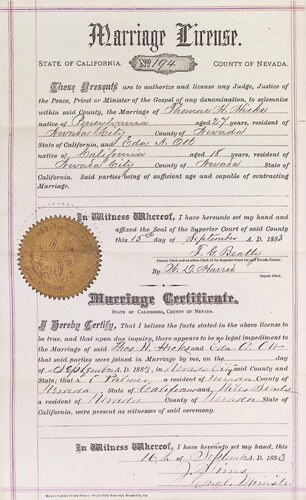 Marriage License.
STATE OF CALIFORNIA. No. 194 COUNTY OF NEVADA.
These Presents are to authorize and license any Judge, Justice of
the Peace, Priest or Minister of the Gospel of any denomination, to solemnize
within said County, the Marriage of Thomas R. Hicks
native of Pennsylvania aged 27 years, resident of
Nevada City County of Nevada
State of California, and Eda A. Ott
native of California aged 18 years, resident of
Nevada City County of Nevada State of
California. Said parties being of sufficient age and capable of contracting
Marriage.
In Witness Whereof, I have hereunto set my hand and
affixed the Seal of the Superior Court of said County
this 15th day of September A. D. 1883
County Clerk and ex-officio Clerk of the Superior Court in and for said Nevada County.
By W. D. Harris
Deputy Clerk.
Marriage Certificate.
STATE OF CALIFORNIA, COUNTY OF NEVADA.
I Hereby Certify, That I believe the facts stated in the above license to
be true, and that upon due inquiry, there appears to be no legal impediment to
the Marriage of said Thos. R. Hicks and Eda A. Ott
that said parties were joined in Marriage by me, on the day
of September A. D. 1883, in Nevada City said County and
State; that Palmer a resident of Nevada County of
Nevada, State of California and
a resident of Nevada County of Nevada State of
California, were present as witnesses of said ceremony.
In Witness Whereof, I have hereunto set my hand, this
16th of September A. D. 1883
J. Sims
Minister